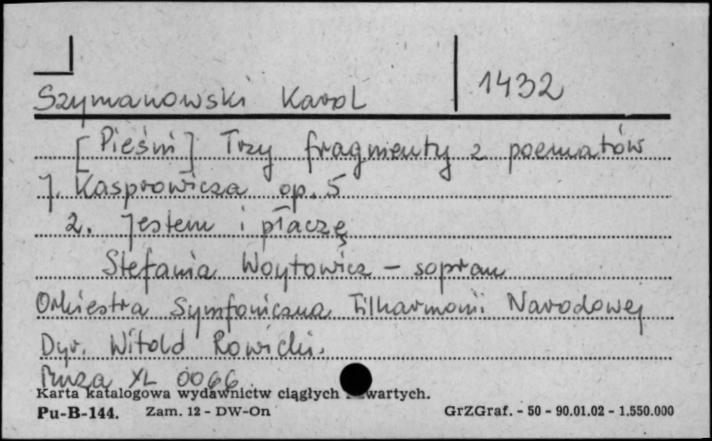 1432
Szymanowski Karol
[Pieśni] Trzy fragmenty z poematów
J. Kasprowicza op. 5
2. Jestem i płaczę
Stefania Woytowicz - sopran
Orkiestra Symfoniczna Filharmonii Narodowej
Dyr. Witold Rowicki.
Muza XL 0066
Karta katalogowa wydawnictw ciągłych wartych.
Pu-B-144. Zam. 12 - DW-On GrZGraf. - 50 - 90.01.02 - 1.550.000